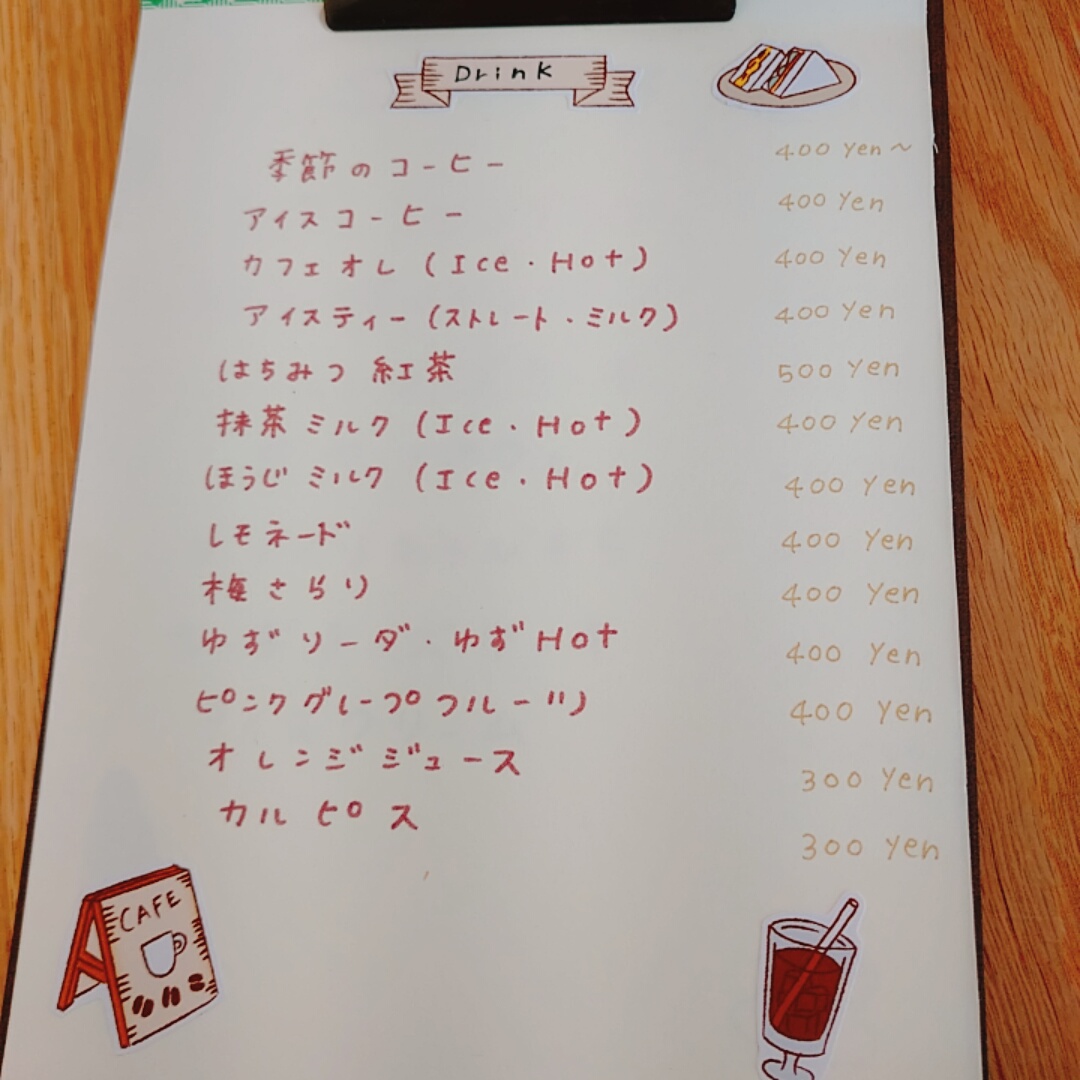 Drink
季節のコーヒー 400 Yen～
アイスコーヒー 400 Yen
カフェオレ (Ice・Hot) 400 Yen
アイスティー (ストレート・ミルク) 400 Yen
はちみつ紅茶 500 Yen
抹茶ミルク (Ice・Hot) 400 Yen
ほうじミルク (Ice・Hot) 400 Yen
レモネード 400 Yen
梅さらり 400 Yen
ゆずソーダ・ゆずHot 400 Yen
ピンクグレープフルーツ 400 Yen
オレンジジュース 300 Yen
カルピス 300 Yen
CAFE